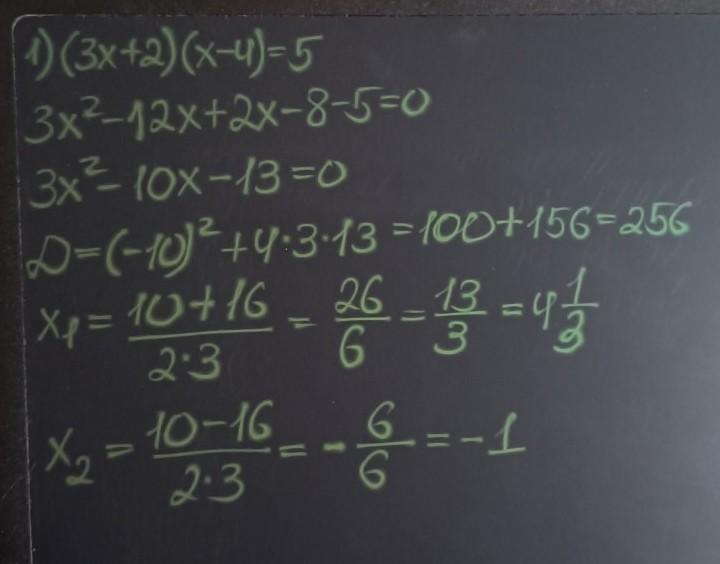 1) (3x+2)(x-4)=5
3x²-12x+2x-8-5=0
3x²-10x-13=0
D=(-10)²+4·3·13=100+156=256
x₁=\frac{10+16}{2·3}=\frac{26}{6}=\frac{13}{3}=4\frac{1}{3}
x₂=\frac{10-16}{2·3}=-\frac{6}{6}=-1